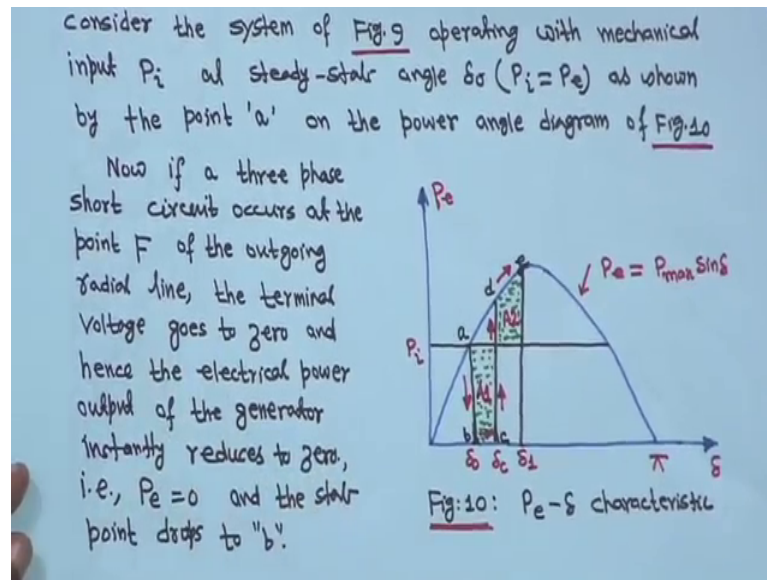 Consider the system of Fig.9 operating with mechanical
input Pi al steady-stab angle δo (Pi = Pe) as shown
by the point 'a' on the power angle diagram of Fig.10
Now if a three phase
short circuit occurs at the
point F of the outgoing
radial line, the terminal
Voltage goes to zero and
hence the electrical power
output of the generator
instantly reduces to zero,
i.e., Pe = 0 and the stab
point drops to "b".
Pe
e
d
Pe = Pmax Sinδ
A2
a
Pi
A1
b
c
δo δc δ1 π δ
Fig:10: Pe-δ characteristic